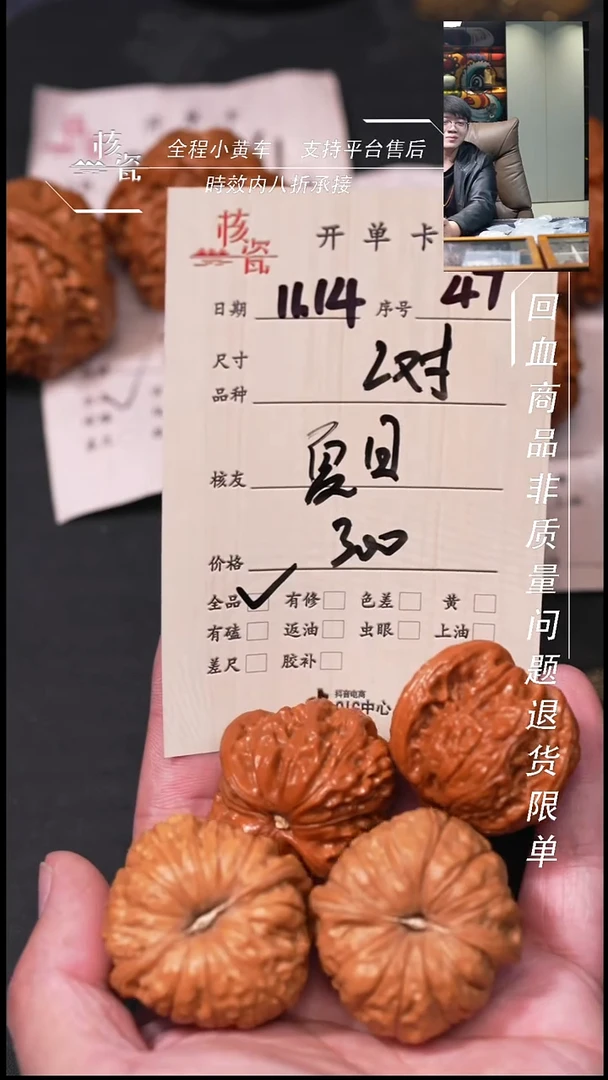 核瓷
全程小黄车 支持平台售后
時效内八折承接
核瓷
开单卡
日期 11.14 序号 47
尺寸
品种 2对
核友 夏目
价格 300
全品 ✓ 有修 色差 黄
有磕 返油 虫眼 上油
差尺 胶补
抖音电商
QIC中心
回血商品非质量问题退货限单